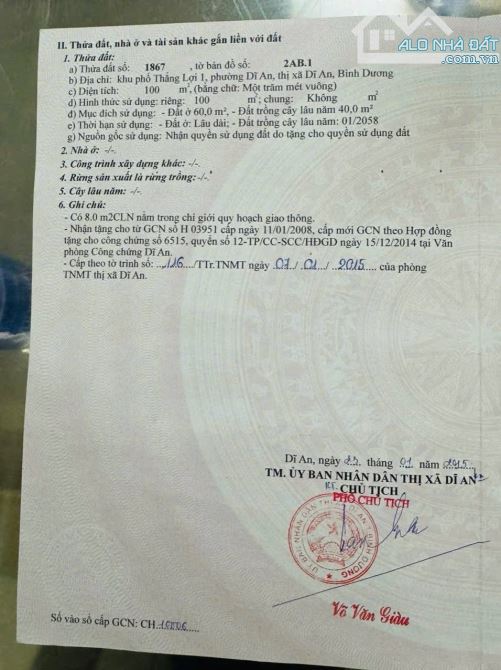 ALO NHÀ ĐẤT
II. Thửa đất, nhà ở và tài sản khác gắn liền với đất
1. Thửa đất:
a) Thửa đất số: 1867 , tờ bản đồ số: 2AB.1
b) Địa chỉ: khu phố Thắng Lợi 1, phường Dĩ An, thị xã Dĩ An, Bình Dương
c) Diện tích: 100 m², (bằng chữ: Một trăm mét vuông)
d) Hình thức sử dụng: riêng: 100 m²; chung: Không m²
đ) Mục đích sử dụng: - Đất ở 60,0 m², - Đất trồng cây lâu năm 40,0 m²
e) Thời hạn sử dụng: - Đất ở: Lâu dài; - Đất trồng cây lâu năm: 01/2058
g) Nguồn gốc sử dụng: Nhận quyền sử dụng đất do tặng cho quyền sử dụng đất
2. Nhà ở: -/-
3. Công trình xây dựng khác: -/-.
4. Rừng sản xuất là rừng trồng: -/-.
5. Cây lâu năm: -/-
6. Ghi chú:
- Có 8.0 m2CLN nằm trong chỉ giới quy hoạch giao thông.
- Nhận tặng cho từ GCN số H 03951 cấp ngày 11/01/2008, cấp mới GCN theo Hợp đồng
tặng cho công chứng số 6515, quyển số 12-TP/CC-SCC/HĐGD ngày 15/12/2014 tại Văn
phòng Công chứng Dĩ An.
- Cấp theo tờ trình số: 116 /TTr.TNMT ngày 07 / 01 / 2015 của phòng
TNMT thị xã Dĩ An.
Dĩ An, ngày 23 tháng 01 năm 2015
TM. ỦY BAN NHÂN DÂN THỊ XÃ DĨ AN
KT. CHỦ TỊCH
PHÓ CHỦ TỊCH
Võ Văn Giàu
Số vào sổ cấp GCN: CH